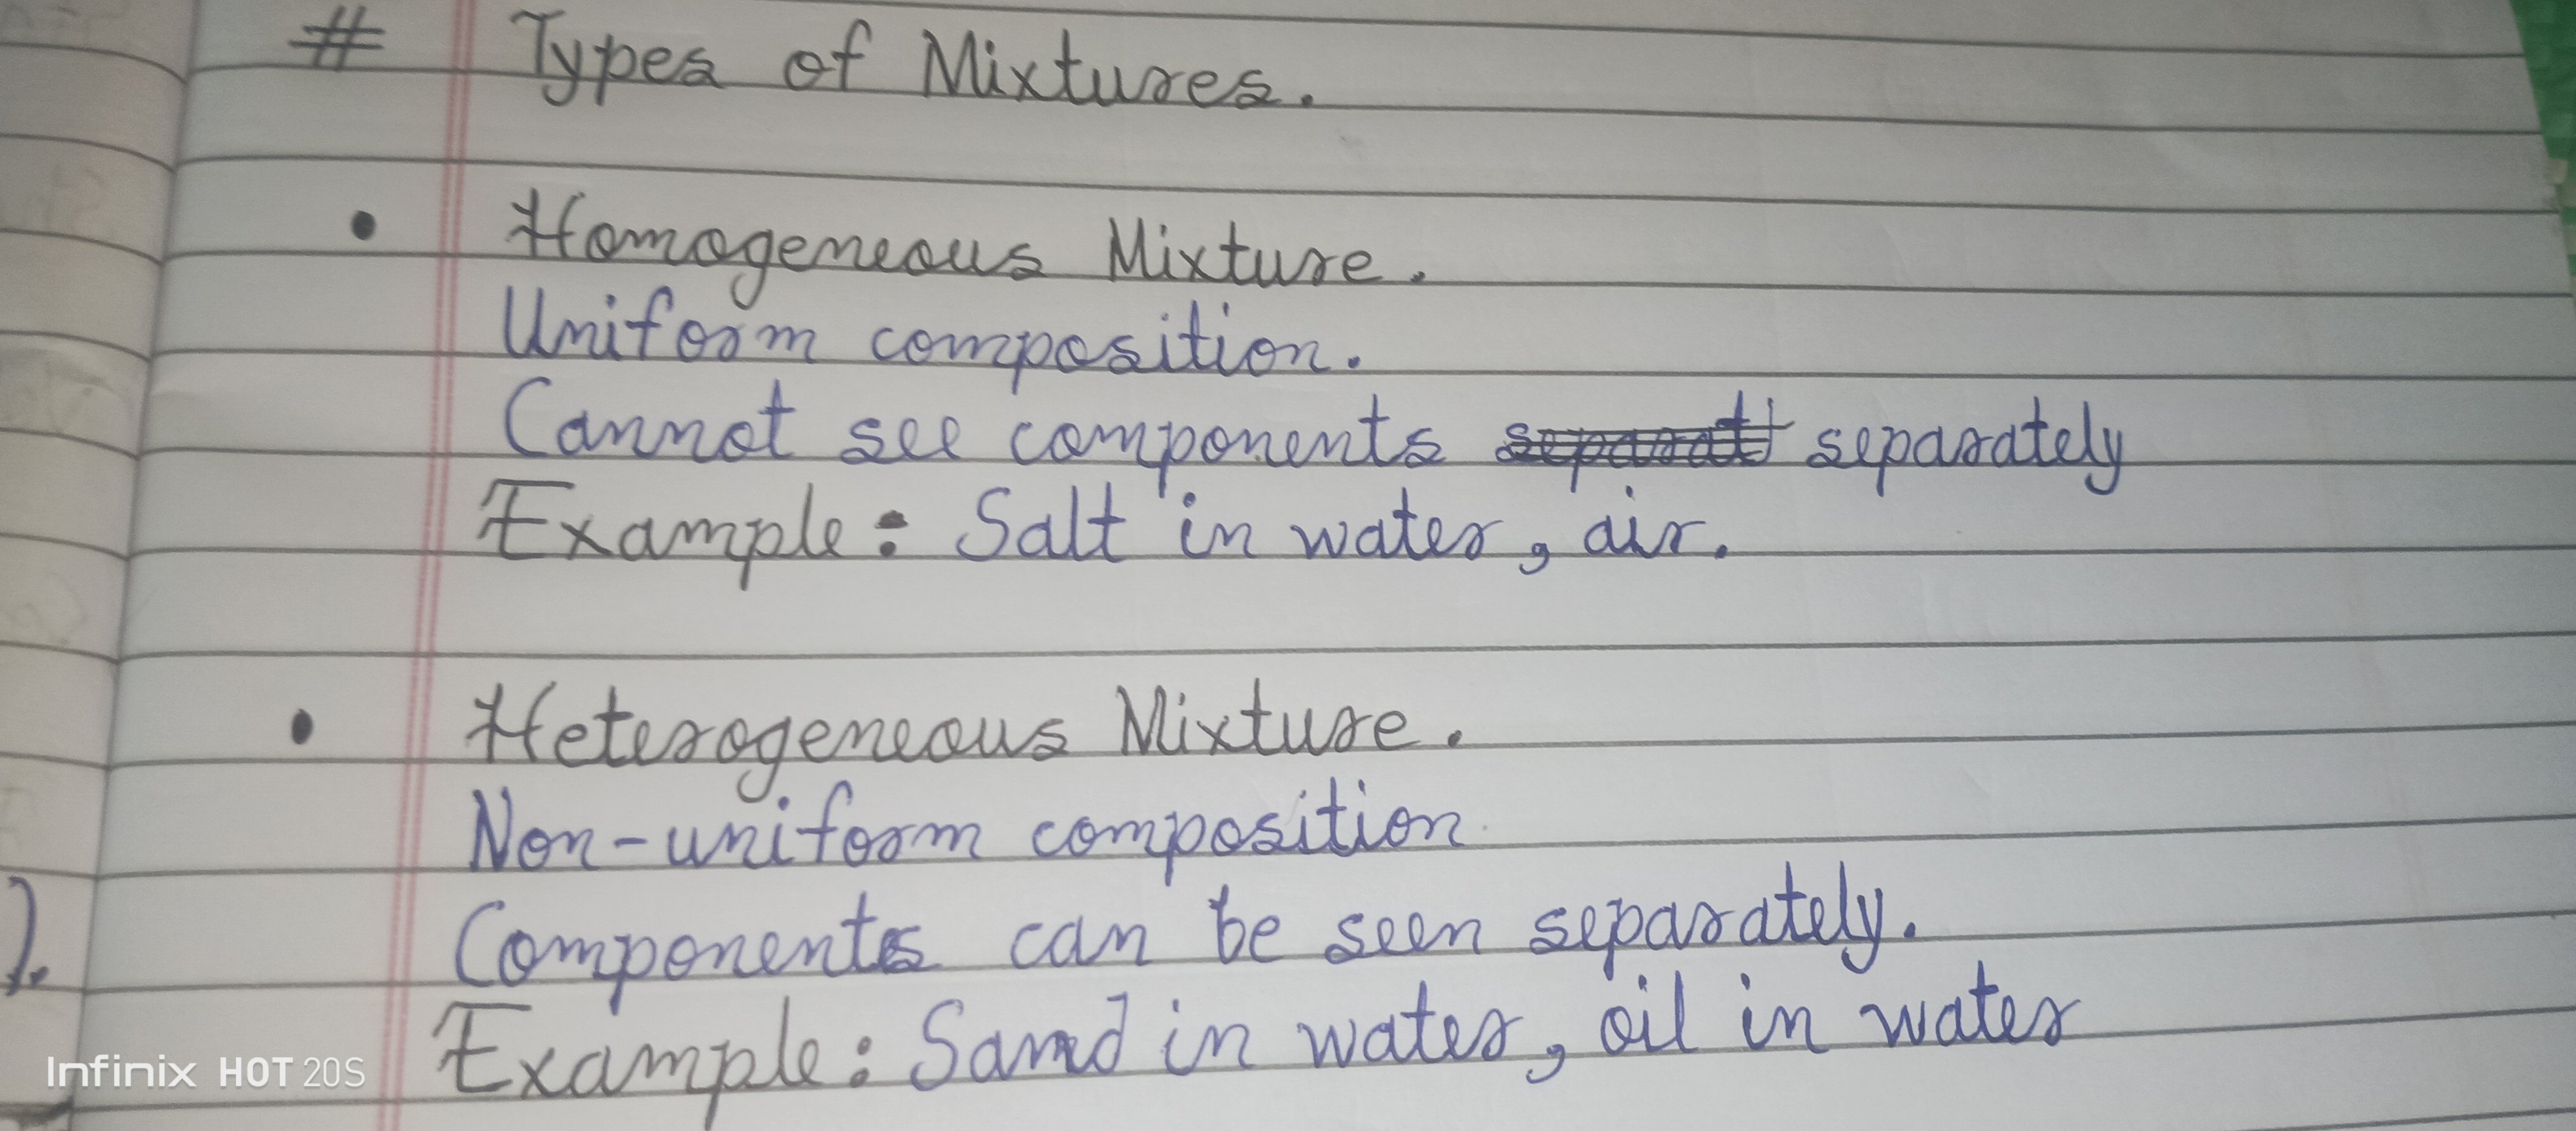 # Types of Mixtures.
• Homogeneous Mixture.
Uniform composition.
Cannot see components separately
Example: Salt in water, air.
• Heterogeneous Mixture.
Non-uniform composition
Components can be seen separately.
Example: Sand in water, oil in water
Infinix HOT 20S